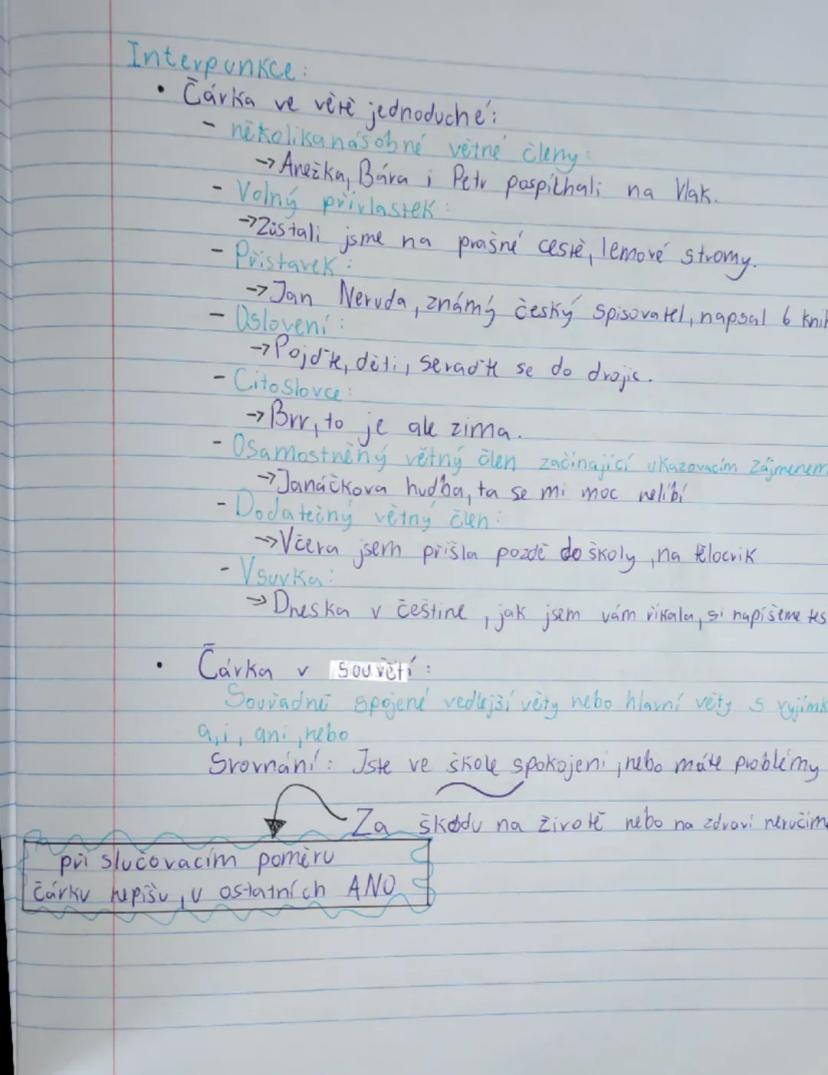 Interpunkce:
• Čárka ve větě jednoduché:
- několikanásobné větné členy:
→ Anežka, Bára i Petr pospíchali na vlak.
- Volný přívlastek:
→ Zůstali jsme na prašné cestě, lemové stromy.
- Přístavek:
→ Jan Neruda, známý český spisovatel, napsal 6 knih
- Oslovení:
→ Pojďte, děti, seraďte se do drojic.
- Citoslovce:
→ Brr, to je ale zima.
- Osamostněný větný člen začínající ukazovacím zájmenem
→ Janáčkova hudba, ta se mi moc nelíbí
- Dodatečný větný člen:
→ Včera jsem přišla pozdě do školy, na tělocvik
- Vsuvka:
→ Dneska v češtině, jak jsem vám říkala, si napíšeme tes
• Čárka v souvětí:
Souřadně spojené vedlejší věty nebo hlavní věty s vyjímk
a, i, ani, nebo
Srovnání: Jste ve škole spokojeni, nebo máte problémy
Za škodu na životě nebo na zdraví neručím
při slučovacím poměru
čárku nepíšu, v ostatních ANO